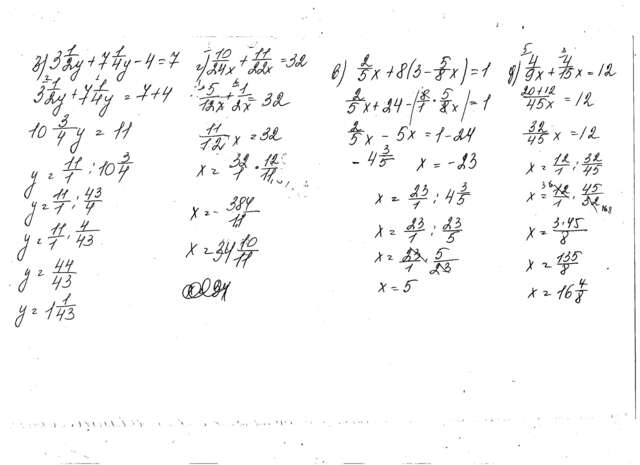 з) 3 1/2 y + 7 1/4 y - 4 = 7
3 1/2 y + 7 1/4 y = 7 + 4
10 3/4 y = 11
y = 11/1 : 10 3/4
y = 11/1 : 43/4
y = 11/1 · 4/43
y = 44/43
y = 1 1/43
г) 10/24x + 11/22x = 32
5/12x + 1/2x = 32
11/12 x = 32
x = 32/1 · 12/11
x = 384/11
x = 34 10/11
в) 2/5 x + 8(3 - 5/8 x) = 1
2/5 x + 24 - (8/1 · 5/8 x) = 1
2/5 x - 5x = 1 - 24
- 4 3/5 x = -23
x = 23/1 : 4 3/5
x = 23/1 : 23/5
x = 23/1 · 5/23
x = 5
д) 4/9x + 4/15 x = 12
20+12/45x = 12
32/45 x = 12
x = 12/1 : 32/45
x = 12/1 · 45/32
x = 3·45/8
x = 135/8
x = 16 4/8